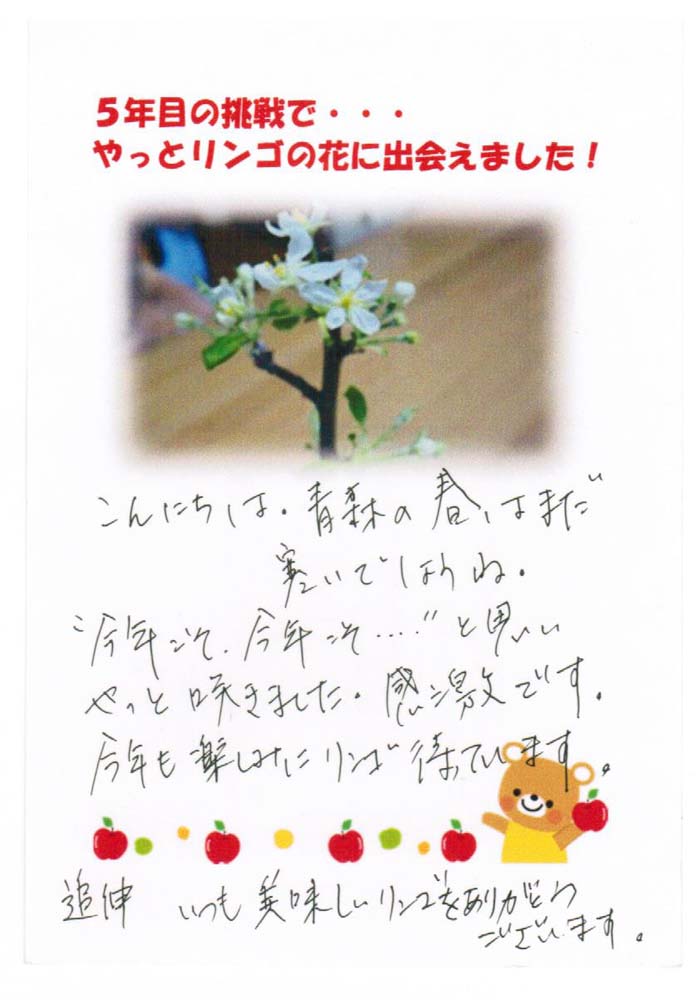 5年目の挑戦で・・・
やっとリンゴの花に出会えました!
こんにちは。青森の春はまだ
寒いでしょうね。
“今年こそ、今年こそ....”と思い
やっと咲きました。感激です。
今年も楽しみにリンゴ待っています。
追伸 いつも美味しいリンゴをありがとう
ございます。